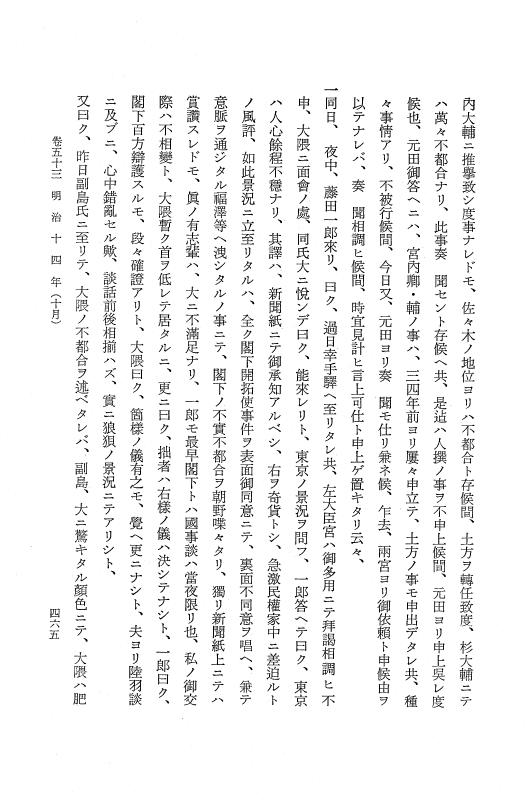 內大輔ニ推擧致シ度事ナレドモ、佐々木ノ地位ヨリハ不都合ト存候間、土方ヲ轉任致度、杉大輔ニテ
ハ萬々不都合ナリ、此事奏　聞セント存候ヘ共、是迠ハ人撰ノ事ヲ不申上候間、元田ヨリ申上吳レ度
候也、元田御答ヘニハ、宮內卿・輔ノ事ハ、三四年前ヨリ屢々申立テ、土方ノ事モ申出デタレ共、種
々事情アリ、不被行候間、今日又、元田ヨリ奏　聞モ仕リ兼ネ候、乍去、兩宮ヨリ御依賴ト申候由ヲ
以テナレバ、奏　聞相調ヒ候間、時宜見計ヒ言上可仕ト申上ゲ置キタリ云々、
一同日、夜中、藤田一郎來リ、曰ク、過日幸手驛ヘ至リタレ共、左大臣宮ハ御多用ニテ拜謁相調ヒ不
申、大隈ニ面會ノ處、同氏大ニ悅ンデ曰ク、能來レリト、東京ノ景況ヲ問フ、一郎答ヘテ曰ク、東京
ハ人心餘程不穩ナリ、其譯ハ、新聞紙ニテ御承知アルベシ、右ヲ奇貨トシ、急激民權家中ニ差迫ルト
ノ風評、如此景況ニ立至リタルハ、全ク閣下開拓使事件ヲ表面御同意ニテ、裏面不同意ヲ唱ヘ、兼テ
意脈ヲ通ジタル福澤等ヘ洩シタルノ事ニテ、閣下ノ不實不都合ヲ朝野喋々タリ、獨リ新聞紙上ニテハ
賞讚スレドモ、眞ノ有志輩ハ、大ニ不滿足ナリ、一郎モ最早閣下トハ國事談ハ當夜限リ也、私ノ御交
際ハ不相變ト、大隈暫ク首ヲ低レテ居タルニ、更ニ曰ク、拙者ハ右樣ノ儀ハ決シテナシト、一郎曰ク、
閣下百方辯護スルモ、段々確證アリト、大隈曰ク、箇樣ノ儀有之モ、覺ヘ更ニナシト、夫ヨリ陸羽談
ニ及ブニ、心中錯亂セル歟、談話前後相揃ハズ、實ニ狼狽ノ景況ニテアリシト、
又曰ク、昨日副島氏ニ至リテ、大隈ノ不都合ヲ述ベタレバ、副島、大ニ驚キタル顏色ニテ、大隈ハ肥
卷五十三　明治十四年（十月）
四六五